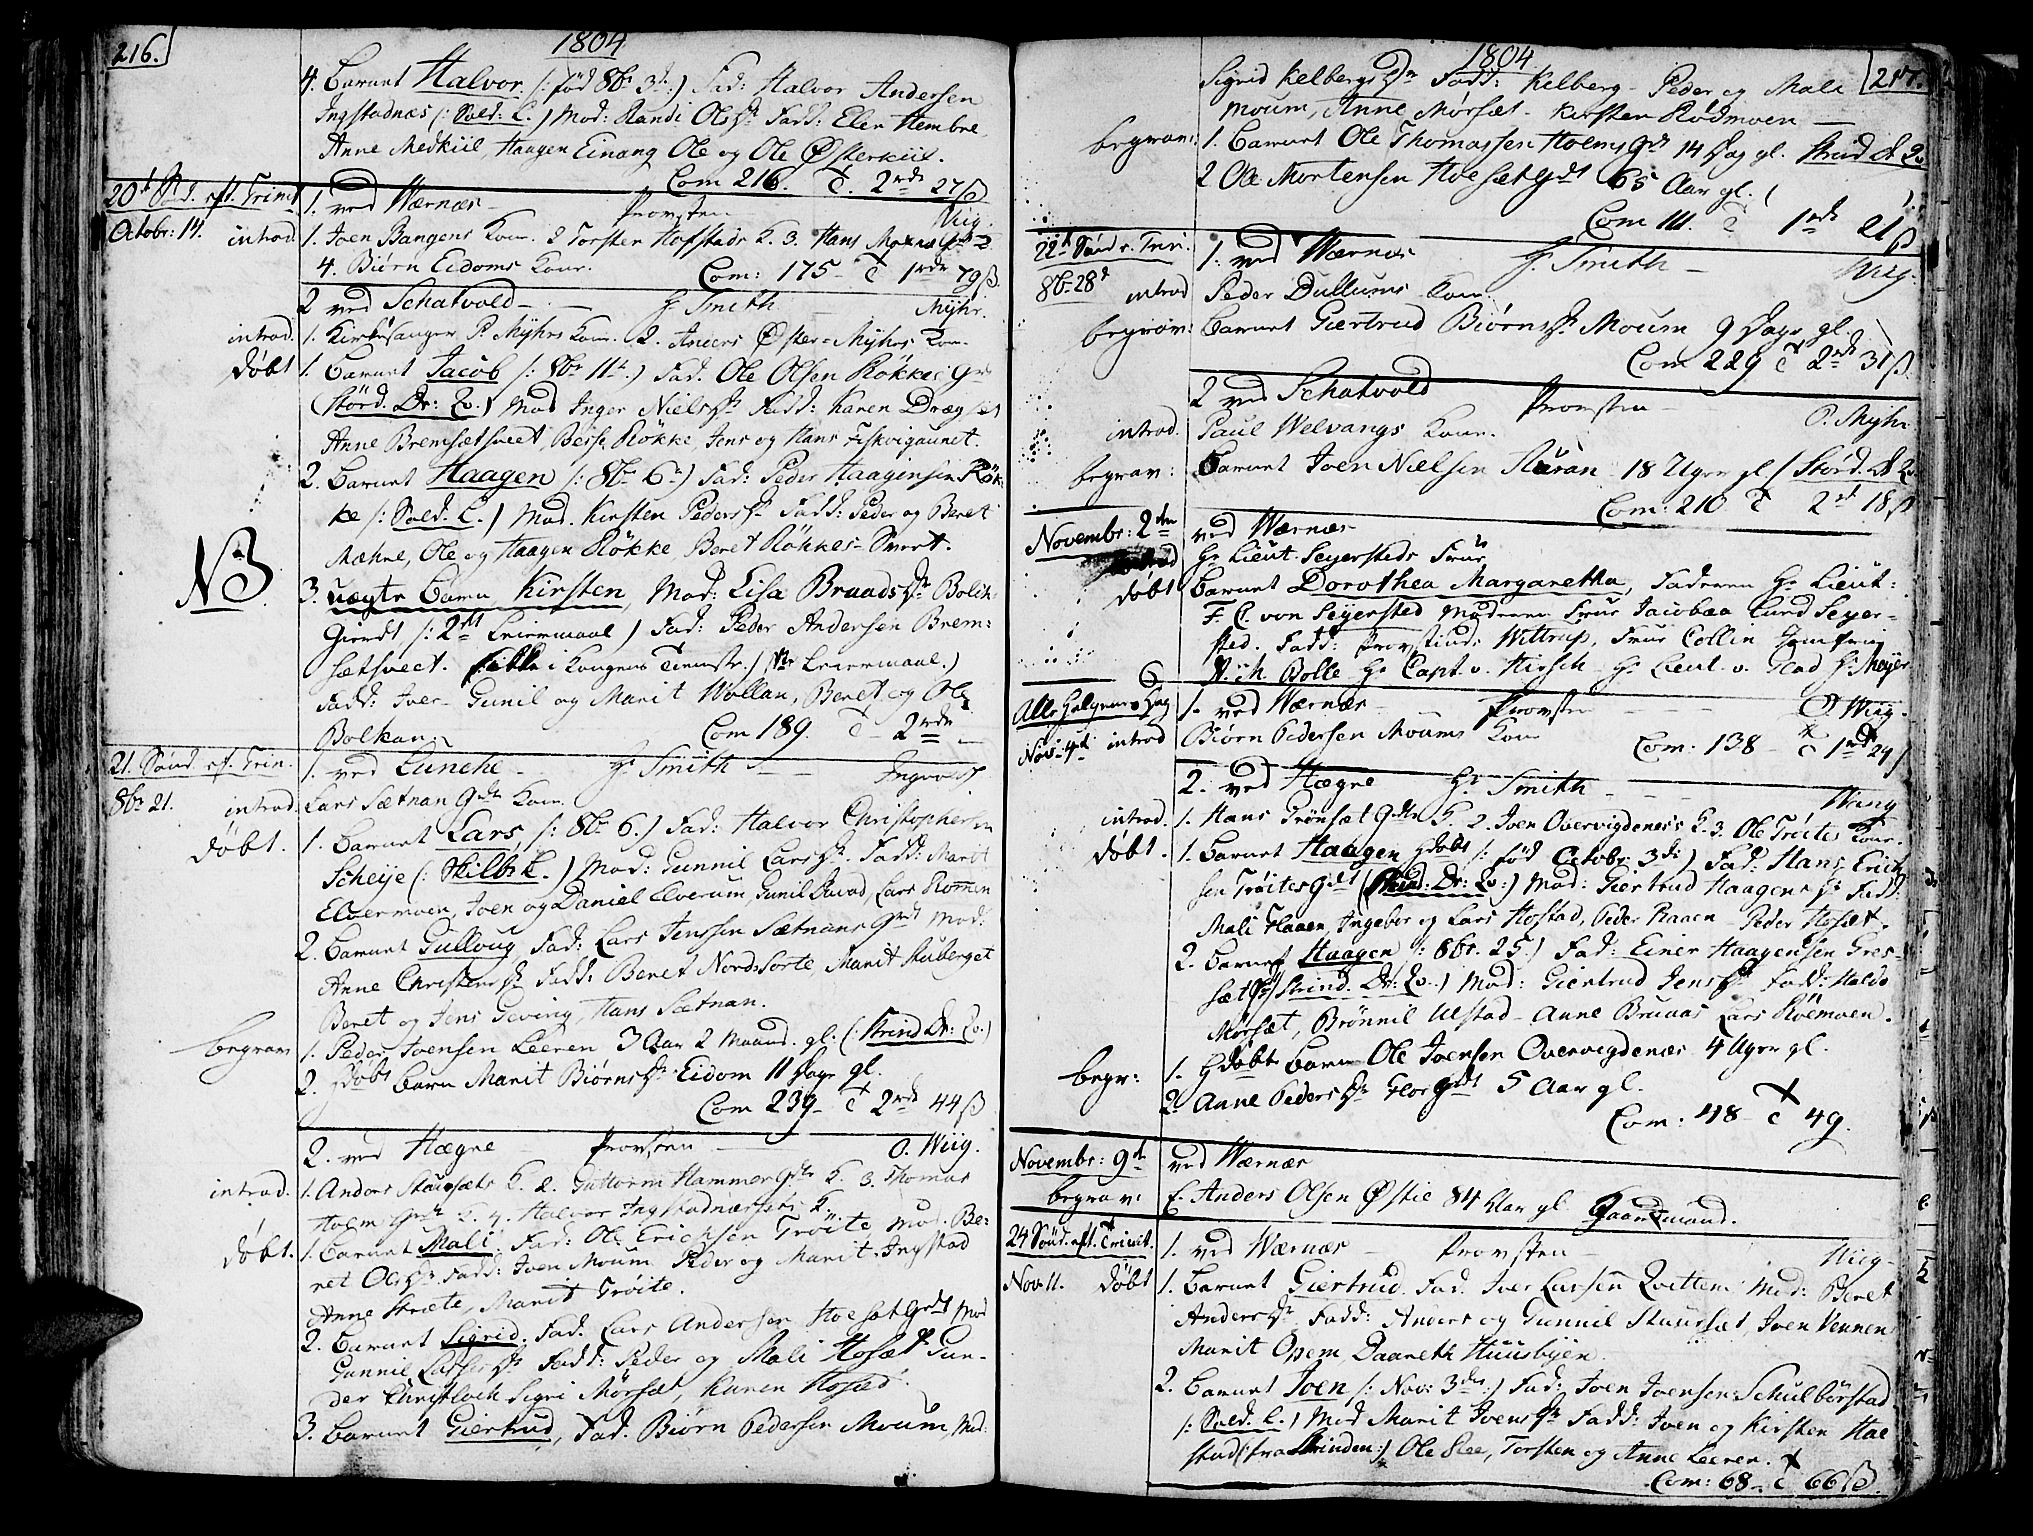 216.
1804
4. Barnet Halvor /: fød 8br 3de:/ Fad: Halvor Andersen
Ingstadnæs /: Sold: L. / Mod: Randi Olsdr Fadd: Elen Hembre
Anne Medkiil, Haagen Einang Ole og Ole Østerkiil.
Com 216. T. 2rdr 27ß
20d Sød. eft. Trinit 1. ved Wærnæs - Provsten Wiig.
Octobr: 14. introd 1. Joen Bangens Kone. 2 Torsten Hofstads K. 3. Hans
4. Biørn Eidoms Kone. Com: 175 - T 1rdr 79ß
2 ved Schatvold - Hr Smith - Myhr.
introd. 1. Kirkesanger P. Myhrs Kone. 2. Anders Øster-Myhrs Kone
døbt 1. Barnet Jacob /: 8br 11t:/ Fad. Ole Olsen Røkke
(Størd. Dr: Co.) Mod Inger Nielsdr Fadd: Karen Dræg
Anne Bremsætsveet, Berse Røkke, Jens og Hans Fiskvigaunet.
2. Barnet Haagen /: 8br 6te:/ Fad: Peder Haagensen Røk-
ke /: Sold. L. / Mod. Kirsten Pedersdr Fadd: Peder og Beret
Mæhre, Ole og Haagen Røkke Beret Røkkes-
NB
3. uægte Barn Kirsten, Mod: Lisa Braadsdr Bolk-
/: 2det Leiermaal / Fad: Peder Andersen Brem-
sætsveet. i Kongens Tieneste.) Leiermaal.)
Fadd: Iver - Gunil og Marit Wollan, Beret og Ole
Bolkan. Com 189. T - 2rdr
21. Sønd. eft. Trin. 1. ved Lunche - Hr Smith - -
8br 21. introd. Lars Sætnan Kone.
døbt. 1. Barnet Lars, /: 8br 6.) Fad: Halvor Christophersen
Scheije (: L.) Mod: Gunnil Larsdr. Fadd: Marit
Elvermoen, Joen og Daniel Elverum, Gunil Lars
2. Barnet Gullaug Fad: Lars Jenssen Sætnans Mod:
Anne Christensdr Fadd: Beret Nordsorte, Marit Stuberget
Beret og Jens Geving, Hans Sætnan.
begrav 1. Peder Joensen Leeren 3 Aar 2 Maand. gl. (: Strind Dr: Co.)
2. Hdøbt Barn Marit Biørnsdr Eidom 11 Dage gl.
Com 239 - T 2rdr 44ß
2. ved Hægne - Provsten O. Wiig.
introd. 1. Anders K. 2. Guttorm Hammer K. 3. Thomas
Holms K. 4. Halvor Ingstadnæssets K.
døbt. 1. Barnet Mali, Fad: Ole Erichsen Trøite Mod. Be-
ret Olsdr Fadd: Joen Moum Peder og Marit Ingstad
Anne Stræte, Marit Trøite.
2. Barnet Sigrid. Fad. Lars Andersen Hoesæt Mod
Gunnil Larsdr Fadd: Peder og Mali Hosæt Gun-
der Sigri Mørsæt, Karen Hosæt.
3. Barnet Giertrud, Fad. Biørn Pedersen Moum, Mod:
1804
217.
Sigrid Kelbergsdr Fadd: Kelberg - Peder og Mali
Moum, Anne Mørset - Kirsten Rødmoen -
begrav: 1. Barnet Ole Thomassen Holms 14 Dag gl. Strind
2 Ole Mortensen Hoesæt 65 Aar gl.
Com 111. T 1rdr 21ß
22d Sønd e. Trin. 1. ved Wærnæs Hr Smith - Wiig.
8br 28d introd Peder Dullums Kone.
begrav: Barnet Giertrud Biørnsdr Moum 9 Dage gl.
Com 229 T 2rdr 31ß.
2 ved Schatvold Provsten - P. Myhr
introd. Paul Welvangs Kone.
begrav: Barnet Joen Nielsen 18 Uger gl / Størd.
Com: 210 T 2rd 18ß
Novembr: 2den ved Wærnæs
introd Hr Lieut. Seyersteds Frue
døbt Barnet Dorothea Margaretha, Faderen Hr Lieut:
F. C. von Seyersted Moderen Frue Jacobæa Lund Seyer-
sted. Fadd: Provstinde Wittrup, Frue Collin Jomfru
Bolle Hr Capt. v. Hirsch - Hr Lieut. v. Hr Meyer
Alle Helgens Dag 1. ved Wærnæs - Provsten - - - O Wiig.
Nov: 4d introd Biørn Pedersen Moums Kone Com: 138 - T 1rdr 24ß
2. ved Hægne Hr Smith - - - Wiig
introd. 1. Hans K. 2. Joen Overvigdenæss K. 3. Ole Trøites Kone.
døbt. 1. Barnet Haagen Hdøbt /: fød Octobr 3de:/ Fad: Hans Erich-
sen Trøites (Strind: Dr: Co:) Mod: Giertrud Haagensdr Fadd:
Mali Flaaen, Ingebor og Lars Hofstad, Peder Raaen - Peder Hosæt.
2. Barnet Haagen /: 8br. 25./ Fad: Einer Haagensen Gres-
sæt /: Strind. Dr: Co./ Mod: Giertrud Jensdr Fadd: Haldo
Mørsæt, Brønnil Ulstad - Anne Bruaas Lars Røemoen.
begr: 1. Hdøbt Barn Ole Joensen Overvigdenæs 4 Uger gl.
2. Anne Pedersdr 5 Aar gl.
Com: 48 - T 49.
Novembr: 9de ved Wærnæs
begrav: Anders Olsen Østie 84 Aar gl. Gaardmand.
24 Sønd. eft. Trinit. 1. ved Wærnæs - Provsten - Wiig -
Nov 11. døbt 1. Barnet Giertrud. Fad. Iver Larsen Qvittem Mod: Beret
Andersdr Fadd: Anders og Gunnil Stuursæt, Joen Vennen
Marit Opem Daareth Huusbyen.
2. Barnet Joen /: Nov: 3de:/ Fad: Joen Joensen Schulbørstad
/: Sold. L. / Mod Marit Joensdr Fadd: Joen og Kirsten Hal-
stad (fra Strinden:) Ole Slee, Torsten og Anne Leeren.
Com: 68 - T 66ß.